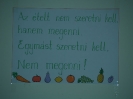 Az ételt nem szeretni kell,
hanem megenni.
Egymást szeretni kell.
Nem megenni!